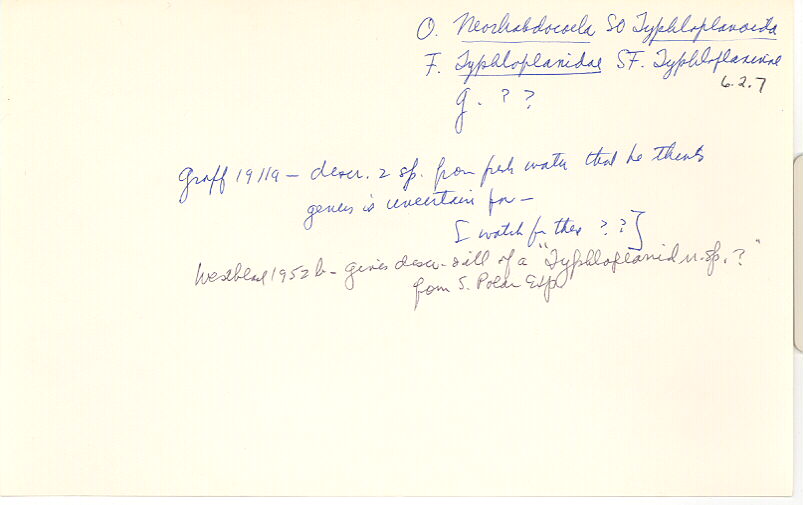 O. Neorhabdocoela SO Typhloplanoida
F. Typhloplanidae SF. Typhloplaninae
6.2.7
g. ? ?
Graff 1911a – descr. 2 sp. from fresh water that he thinks
genus is uncertain for –
[ watch for these ? ? ]
Westblad 1952b – gives descr. & ill of a "Typhloplanid n. sp. ?"
from S. Polar Exp